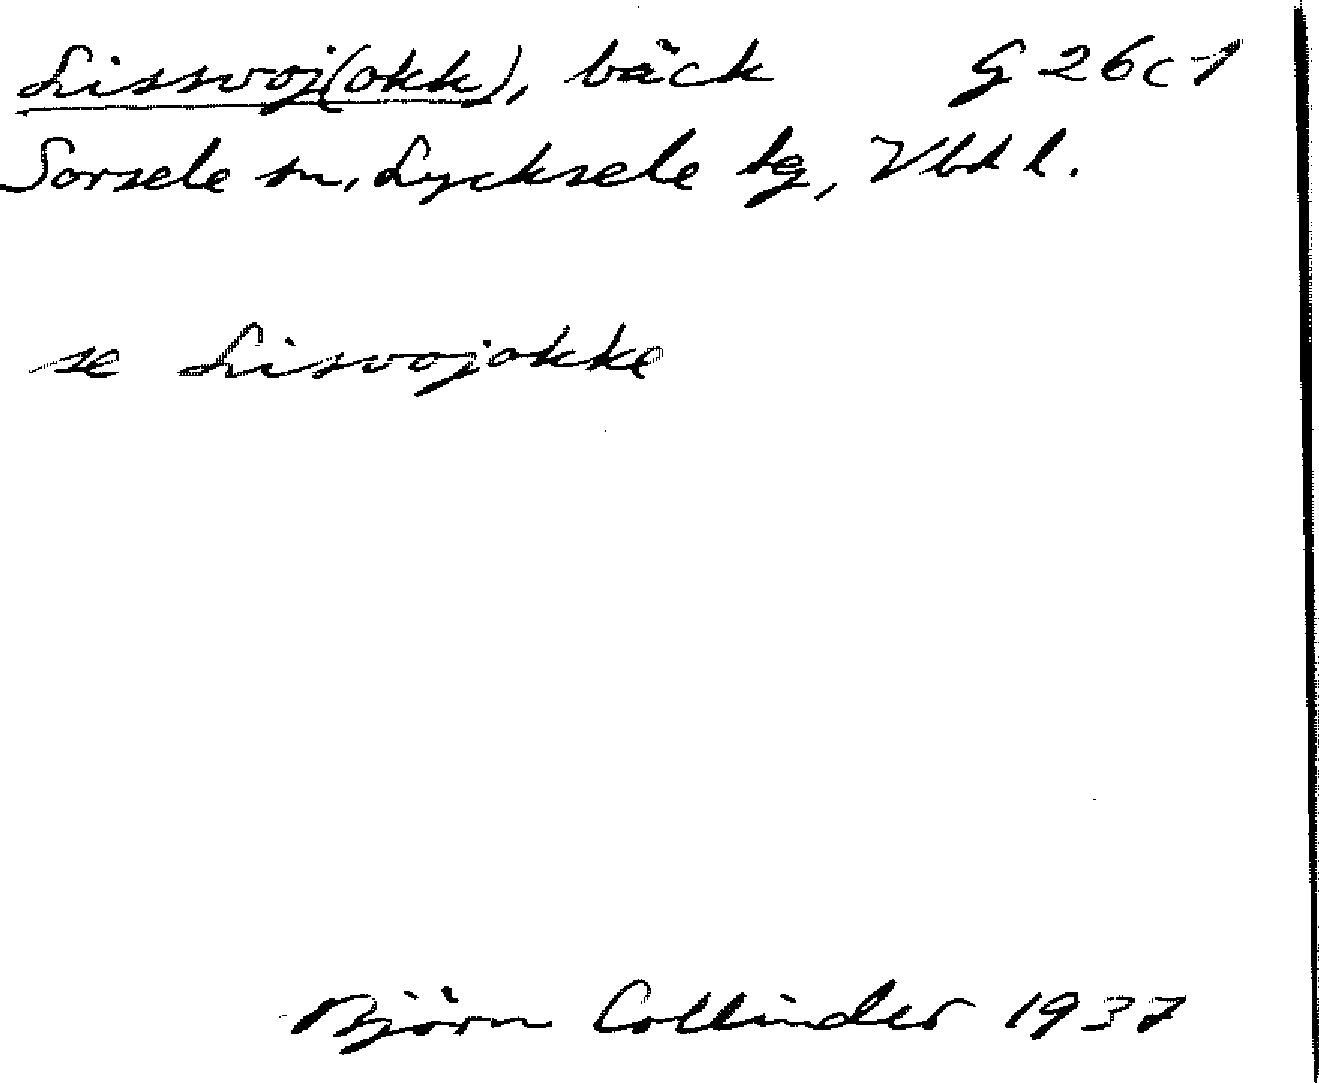 Lissvoj(okk), bäck G 26c-1
Sorsele sn, Lycksele lg, Vbd l.
se Lisvojokke
Björn Collinder 1937